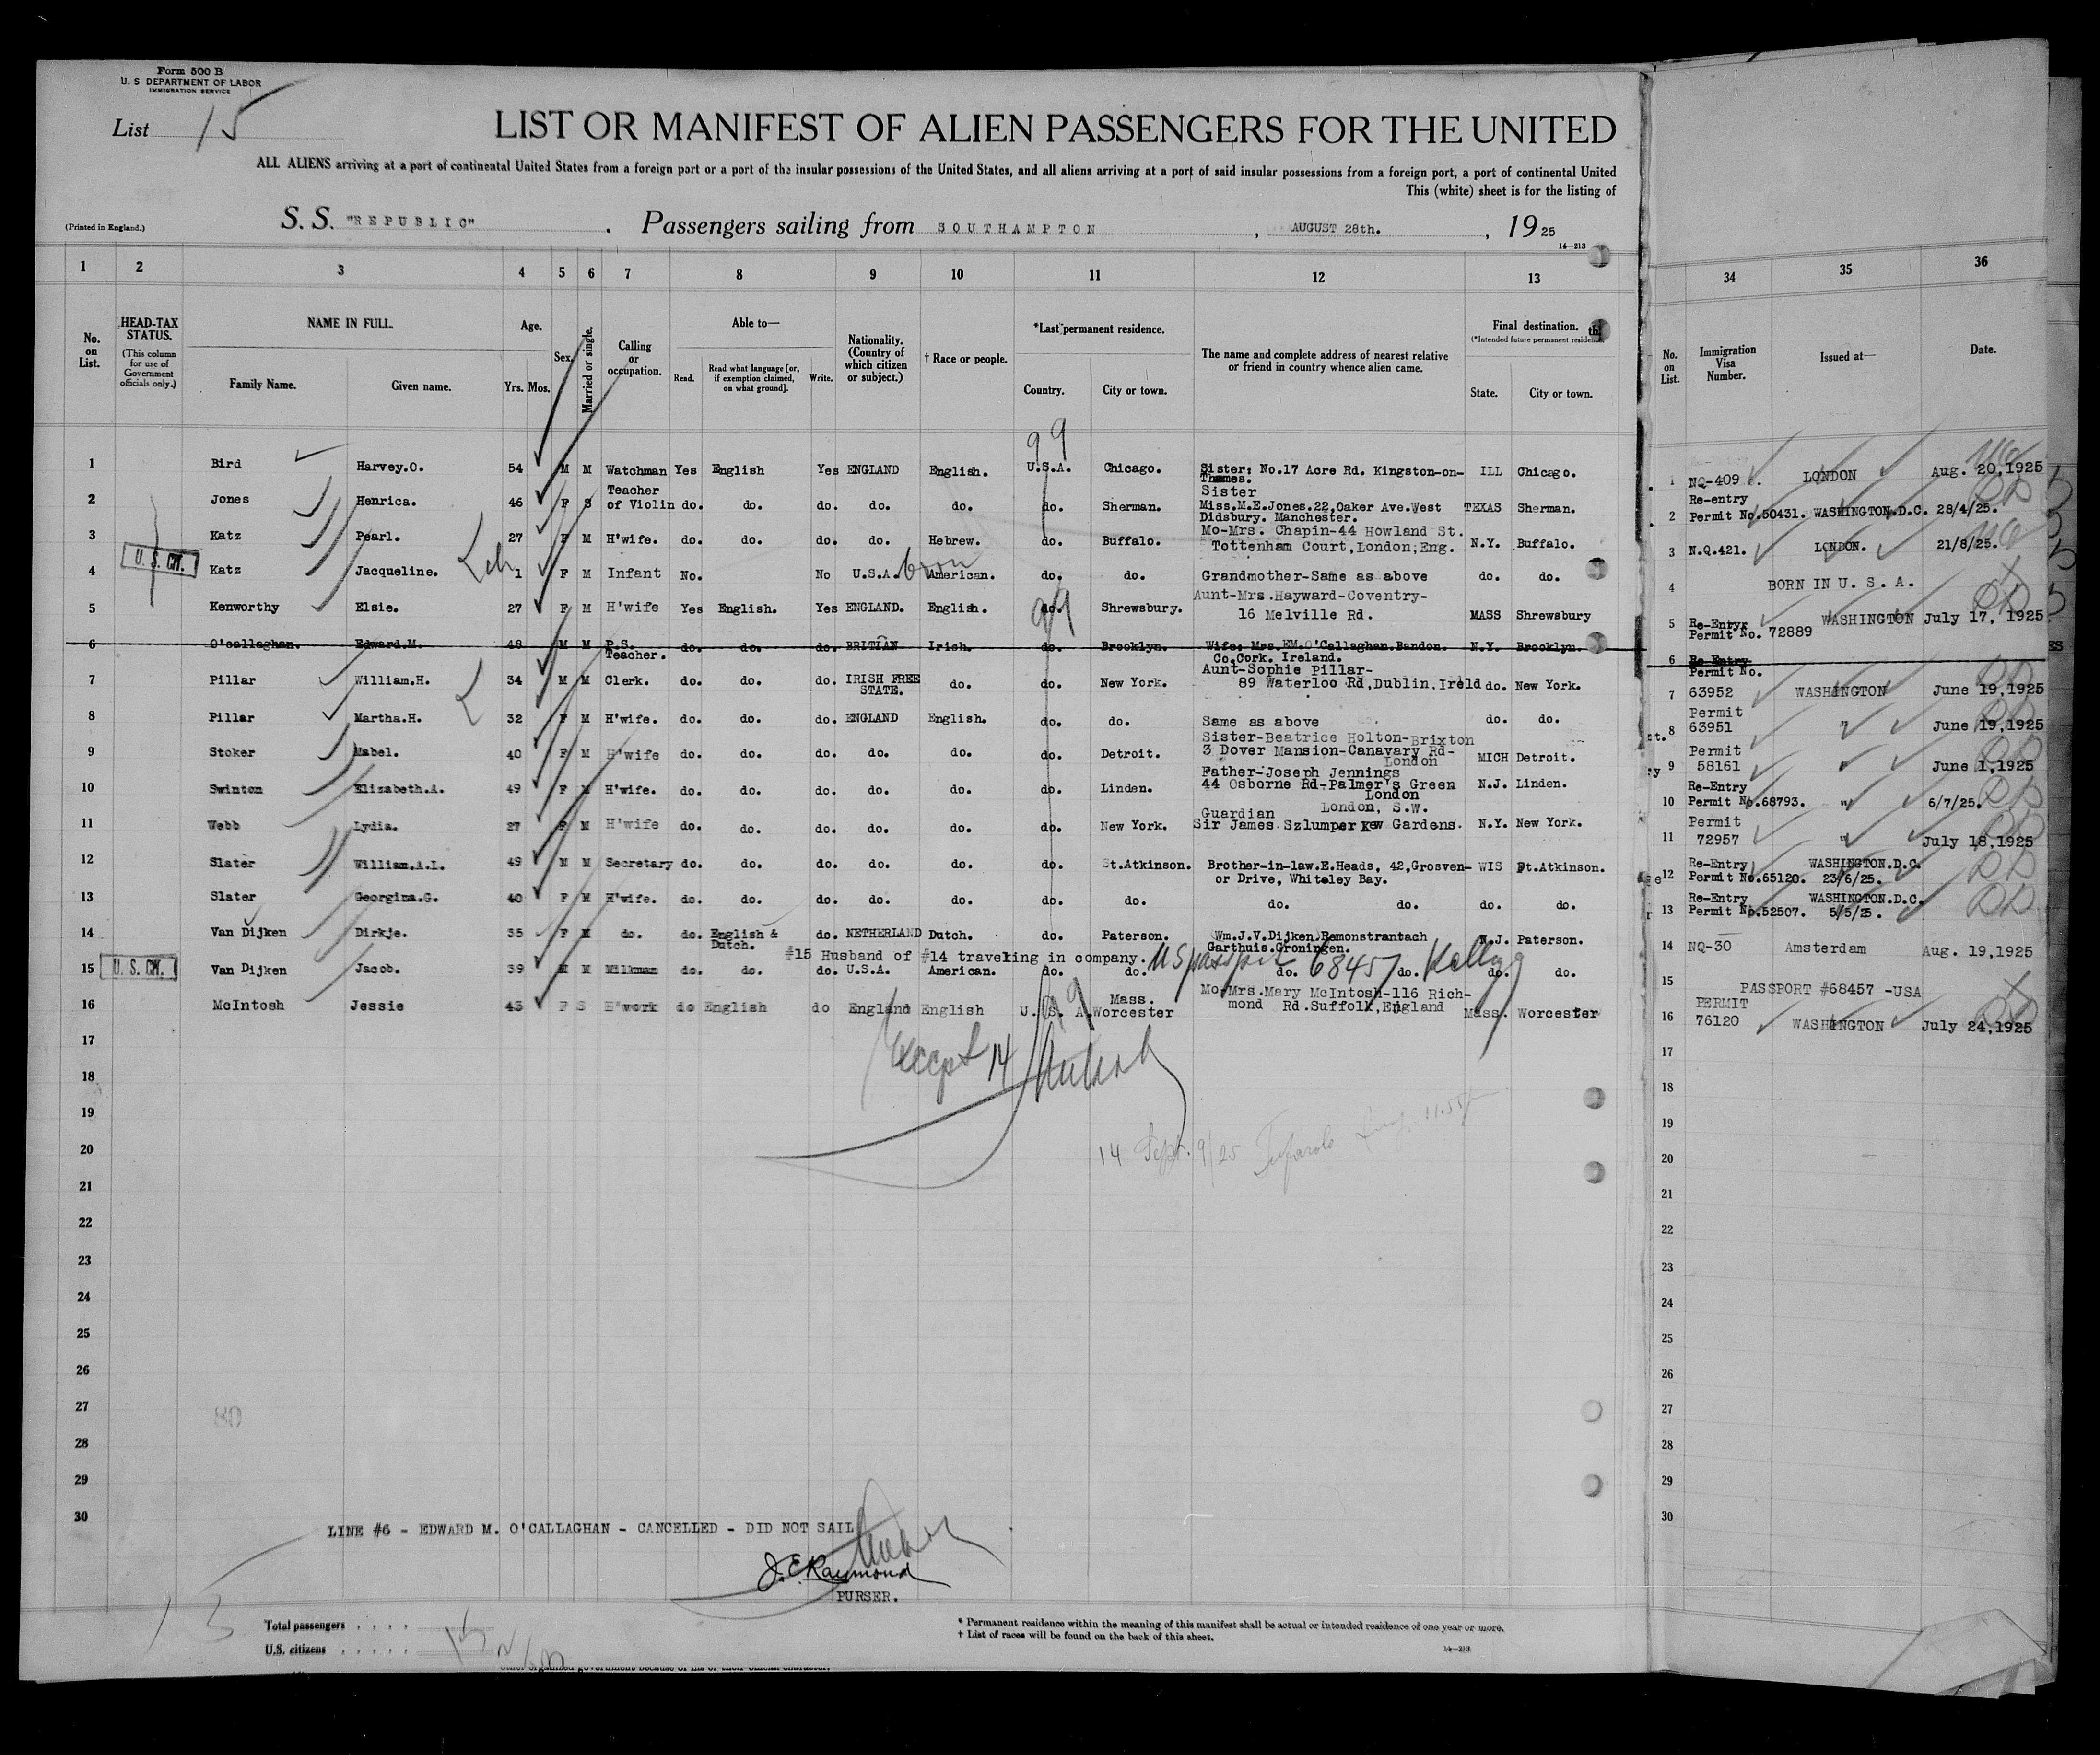 Form 500 B
U. S DEPARTMENT OF LABOR
IMMIGRATION SERVICE
List 15
LIST OR MANIFEST OF ALIEN PASSENGERS FOR THE UNITED
ALL ALIENS arriving at a port of continental United States from a foreign port or a port of the insular possessions of the United States, and all aliens arriving at a port of said insular possessions from a foreign port, a port of continental United
This (white) sheet is for the listing of
(Printed in England.)
S. S. "REPUBLIC" . Passengers sailing from SOUTHAMPTON , AUGUST 28th. , 19 25
14—213
1 2 3 4 5 6 7 8 9 10 11 12 13 34 35 36
No. on List.
HEAD-TAX STATUS.
(This column for use of Government officials only.)
NAME IN FULL.
Family Name. Given name.
Age.
Yrs. Mos.
Sex.
Married or single.
Calling or occupation.
Able to—
Read. Read what language [or, if exemption claimed, on what ground]. Write.
Nationality. (Country of which citizen or subject.)
† Race or people.
*Last permanent residence.
Country. City or town.
The name and complete address of nearest relative or friend in country whence alien came.
Final destination.
(*Intended future permanent residence
State. City or town.
No. on List.
Immigration Visa Number.
Issued at—
Date.
99
1 Bird Harvey.O. 54 M M Watchman Yes English Yes ENGLAND English. U.S.A. Chicago. Sister: No.17 Acre Rd. Kingston-on-Thames. ILL Chicago. 1 NQ-409 LONDON Aug. 20,1925
2 Jones Henrica. 46 F S Teacher of Violin do. do. do. do. do. do. Sherman. Sister Miss.M.E.Jones.22,Oaker Ave.West Didsbury. Manchester. TEXAS Sherman. 2 Re-entry Permit No.50431. WASHINGTON.D.C. 28/4/25.
3 Katz Pearl. 27 F M H'wife. do. do. do. do. Hebrew. do. Buffalo. Mo-Mrs. Chapin-44 Howland St. Tottenham Court,London;Eng. N.Y. Buffalo. 3 N.Q.421. LONDON. 21/8/25.
U. S. CIT.
4 Katz Jacqueline. 1 F M Infant No. No U.S.A. born American. do. do. Grandmother-Same as above do. do. 4 BORN IN U. S. A.
5 Kenworthy Elsie. 27 F M H'wife Yes English. Yes ENGLAND. English. do. 99 Shrewsbury. Aunt-Mrs.Hayward-Coventry- 16 Melville Rd. MASS Shrewsbury 5 Re-Entry Permit No. 72889 WASHINGTON July 17, 1925
6 O'callaghan. Edward.M. 48 M M P.S. Teacher. do. do. do. BRITIAN Irish. do. Brooklyn. Wife: Mrs.EM.O'Callaghan.Bandon. Co.Cork. Ireland. N.Y. Brooklyn. 6 Re-Entry
7 Pillar William.H. 34 M M Clerk. do. do. do. IRISH FREE STATE. do. do. New York. Aunt-Sophie Pillar- 89 Waterloo Rd,Dublin,Ireld do. New York. 7 Permit No. 63952 WASHINGTON June 19,1925
8 Pillar Martha.H. 32 F M H'wife. do. do. do. ENGLAND English. do. do. Same as above do. do. 8 Permit 63951 " June 19,1925
9 Stoker Mabel. 40 F M H'wife do. do. do. do. do. do. Detroit. Sister-Beatrice Holton-Brixton 3 Dover Mansion-Canavary Rd- London MICH Detroit. 9 Permit 58161 " June 1,1925
10 Swinton Elizabeth.A. 49 F M H'wife. do. do. do. do. do. do. Linden. Father-Joseph Jennings 44 Osborne Rd-Palmer's Green London N.J. Linden. 10 Re-Entry Permit No.68793. " 6/7/25.
11 Webb Lydia. 27 F M H'wife do. do. do. do. do. do. New York. Guardian London, S.W. Sir James Szlumper Kew Gardens. N.Y. New York. 11 Permit 72957 " July 18,1925
12 Slater William.A.L. 49 M M Secretary do. do. do. do. do. do. St.Atkinson. Brother-in-law.E.Heads, 42,Grosvenor Drive, Whiteley Bay. WIS Ft.Atkinson. 12 Re-Entry Permit No.65120. WASHINGTON.D.C. 23/6/25.
13 Slater Georgina.G. 40 F M H'wife. do. do. do. do. do. do. do. do. do. do. do. 13 Re-Entry Permit No.52507. WASHINGTON.D.C. 5/5/25.
14 Van Dijken Dirkje. 35 F M do. do. English & Dutch. do. NETHERLAND Dutch. do. Paterson. Wm.J.V.Dijken Remonstrantach Garthuis.Groningen. N.J. Paterson. 14 NQ-30 Amsterdam Aug. 19,1925
#15 Husband of #14 traveling in company. US passport 68457 Kellogg
U. S. CIT.
15 Van Dijken Jacob. 39 M M Milkman do. do. do. U.S.A. American. do. do. do. do. do. do. 15 PASSPORT #68457 -USA
16 McIntosh Jessie 43 F S H'work do English do England English U. S. A. Mass. Worcester Mo-Mrs.Mary McIntosh-116 Richmond Rd.Suffolk,England Mass. Worcester 16 PERMIT 76120 WASHINGTON July 24,1925
99
17 17
Except 14
18 18
19 19
20 14 Sept. 9/25 20
21 21
22 22
23 23
24 24
25 25
26 26
27 27
28 28
29 29
30 30
LINE #6 - EDWARD M. O'CALLAGHAN - CANCELLED - DID NOT SAIL
J.E. Raymond
PURSER.
Total passengers . . . . 15
U.S. citizens . . . . .
* Permanent residence within the meaning of this manifest shall be actual or intended residence of one year or more.
† List of races will be found on the back of this sheet.
14—213